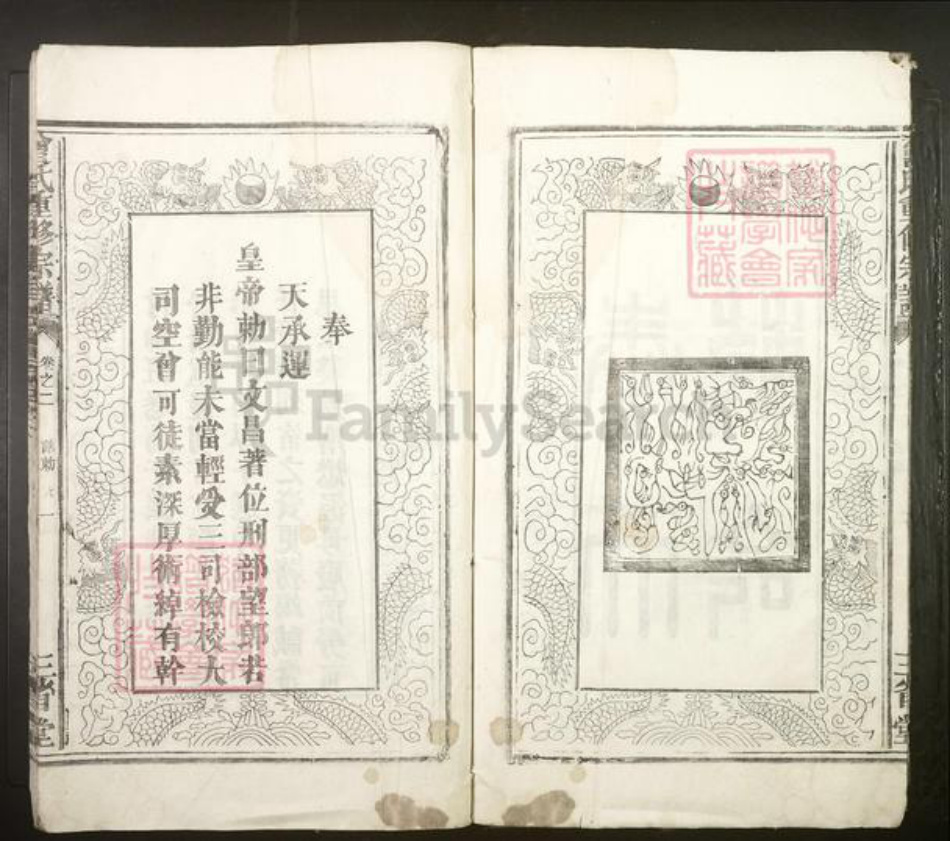 曾氏重修宗譜
三省堂
奉
天承運
皇帝勅曰文昌著位刑部望郎若
非勤能未當輕受三司檢校大
司空曾可徒素深厚術綽有幹
曾氏重修宗譜
卷之二
誥勅
一
三省堂
FamilySearch